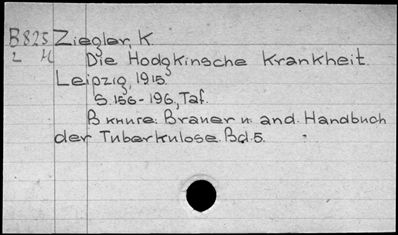 B825 Ziegler, K.
2 H Die Hodgkinsche Krankheit.
Leipzig, 1915.
S. 156-196, Taf.
В книге: Brauer u. and. Handbuch
der Tuberkulose. Bd. 5.